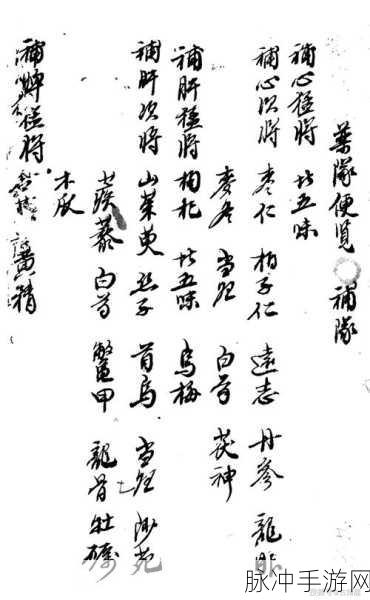 藥隊便覽 補隊
補心猛將 北五味
補心次將 枣仁 柏子仁 遠志 丹參 龍眼
麥冬 當歸 白芍 茯神
補肝猛將 枸杞 北五味 烏梅
補肝次將 山茱萸 丝子 首烏 當歸 沙苑
蒺藜 白芍 鱉甲 龍骨 牡蠣
木瓜
補脾猛將 黃精
脉冲手游网